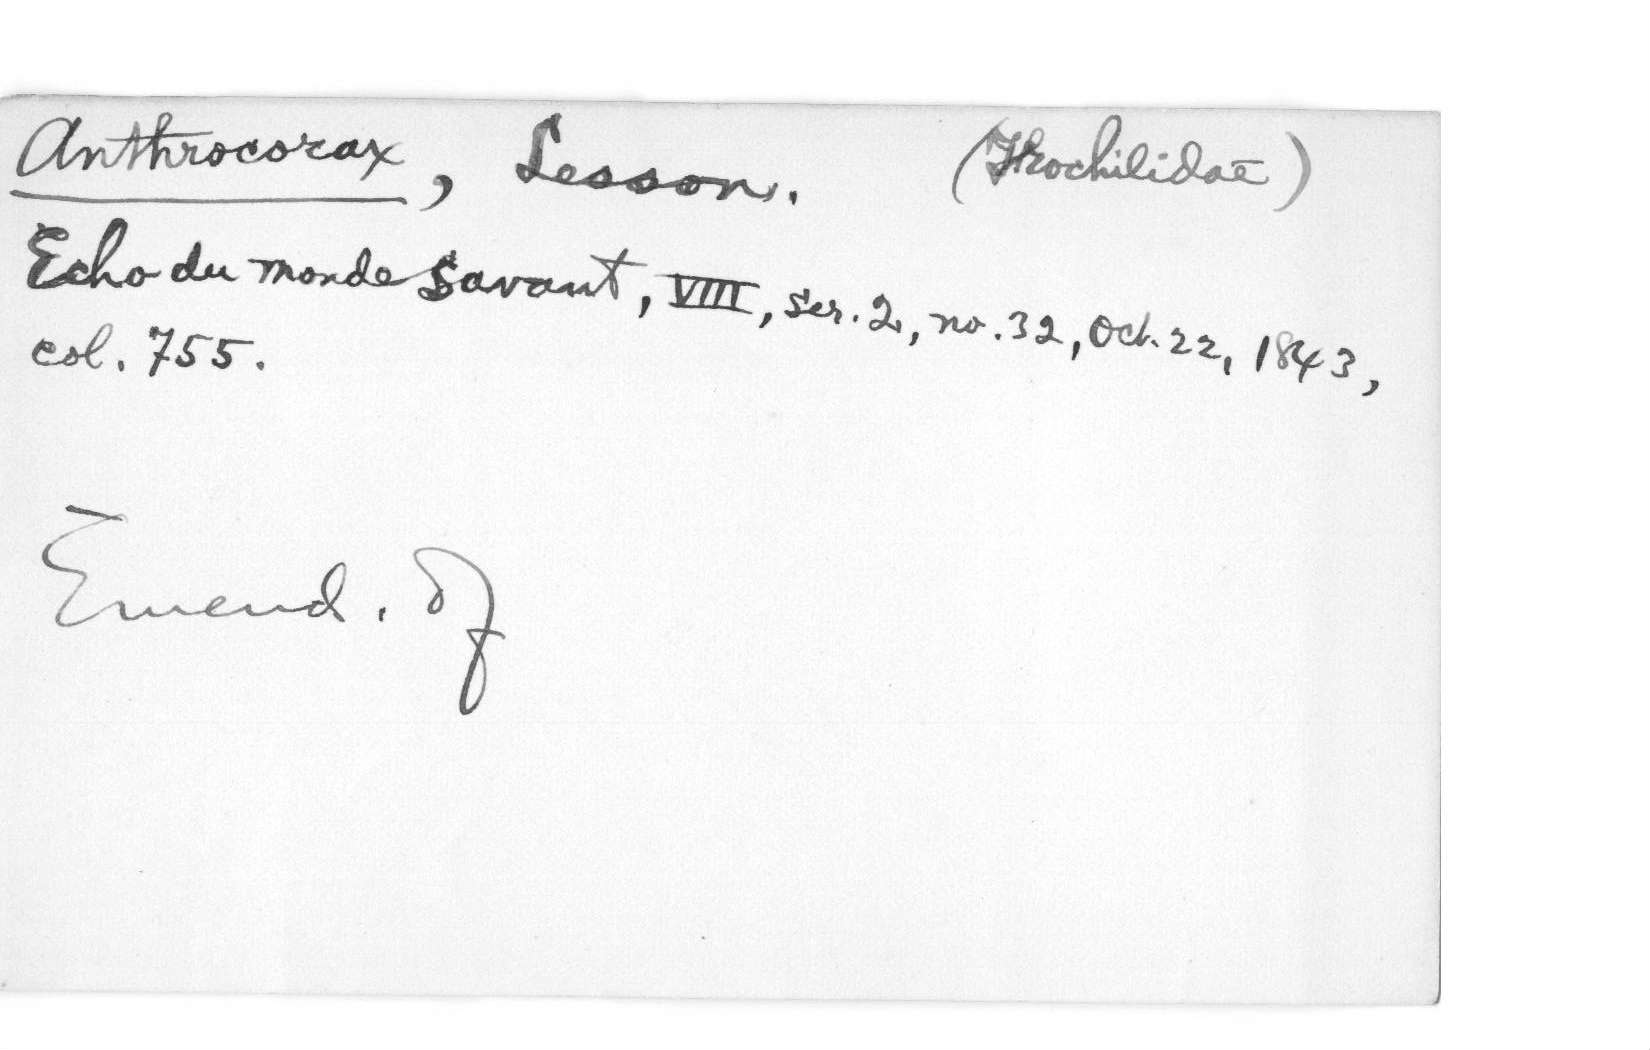 Anthrocorax, Lesson. (Trochilidae)
Echo du monde Savant, VIII, ser. 2, no. 32, Oct. 22, 1843,
col. 755.
Emend. of